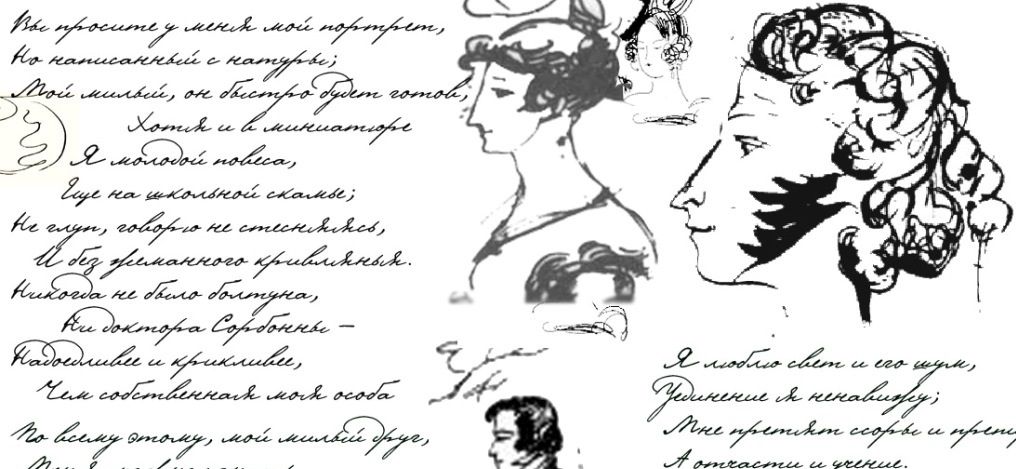 Вы просите у меня мой портрет,
Но написанный с натуры;
Мой милый, он быстро будет готов,
Хотя и в миниатюре
Я молодой повеса,
Еще на школьной скамье;
Не глуп, говорю не стесняясь,
И без жеманного кривлянья.
Никогда не было болтуна,
Ни доктора Сорбонны –
Надоедливее и крикливее,
Чем собственная моя особа
По всему этому, мой милый друг,
Я люблю свет и его шум,
Уединение я ненавижу;
Мне претят ссоры и препи
А отчасти и учение.